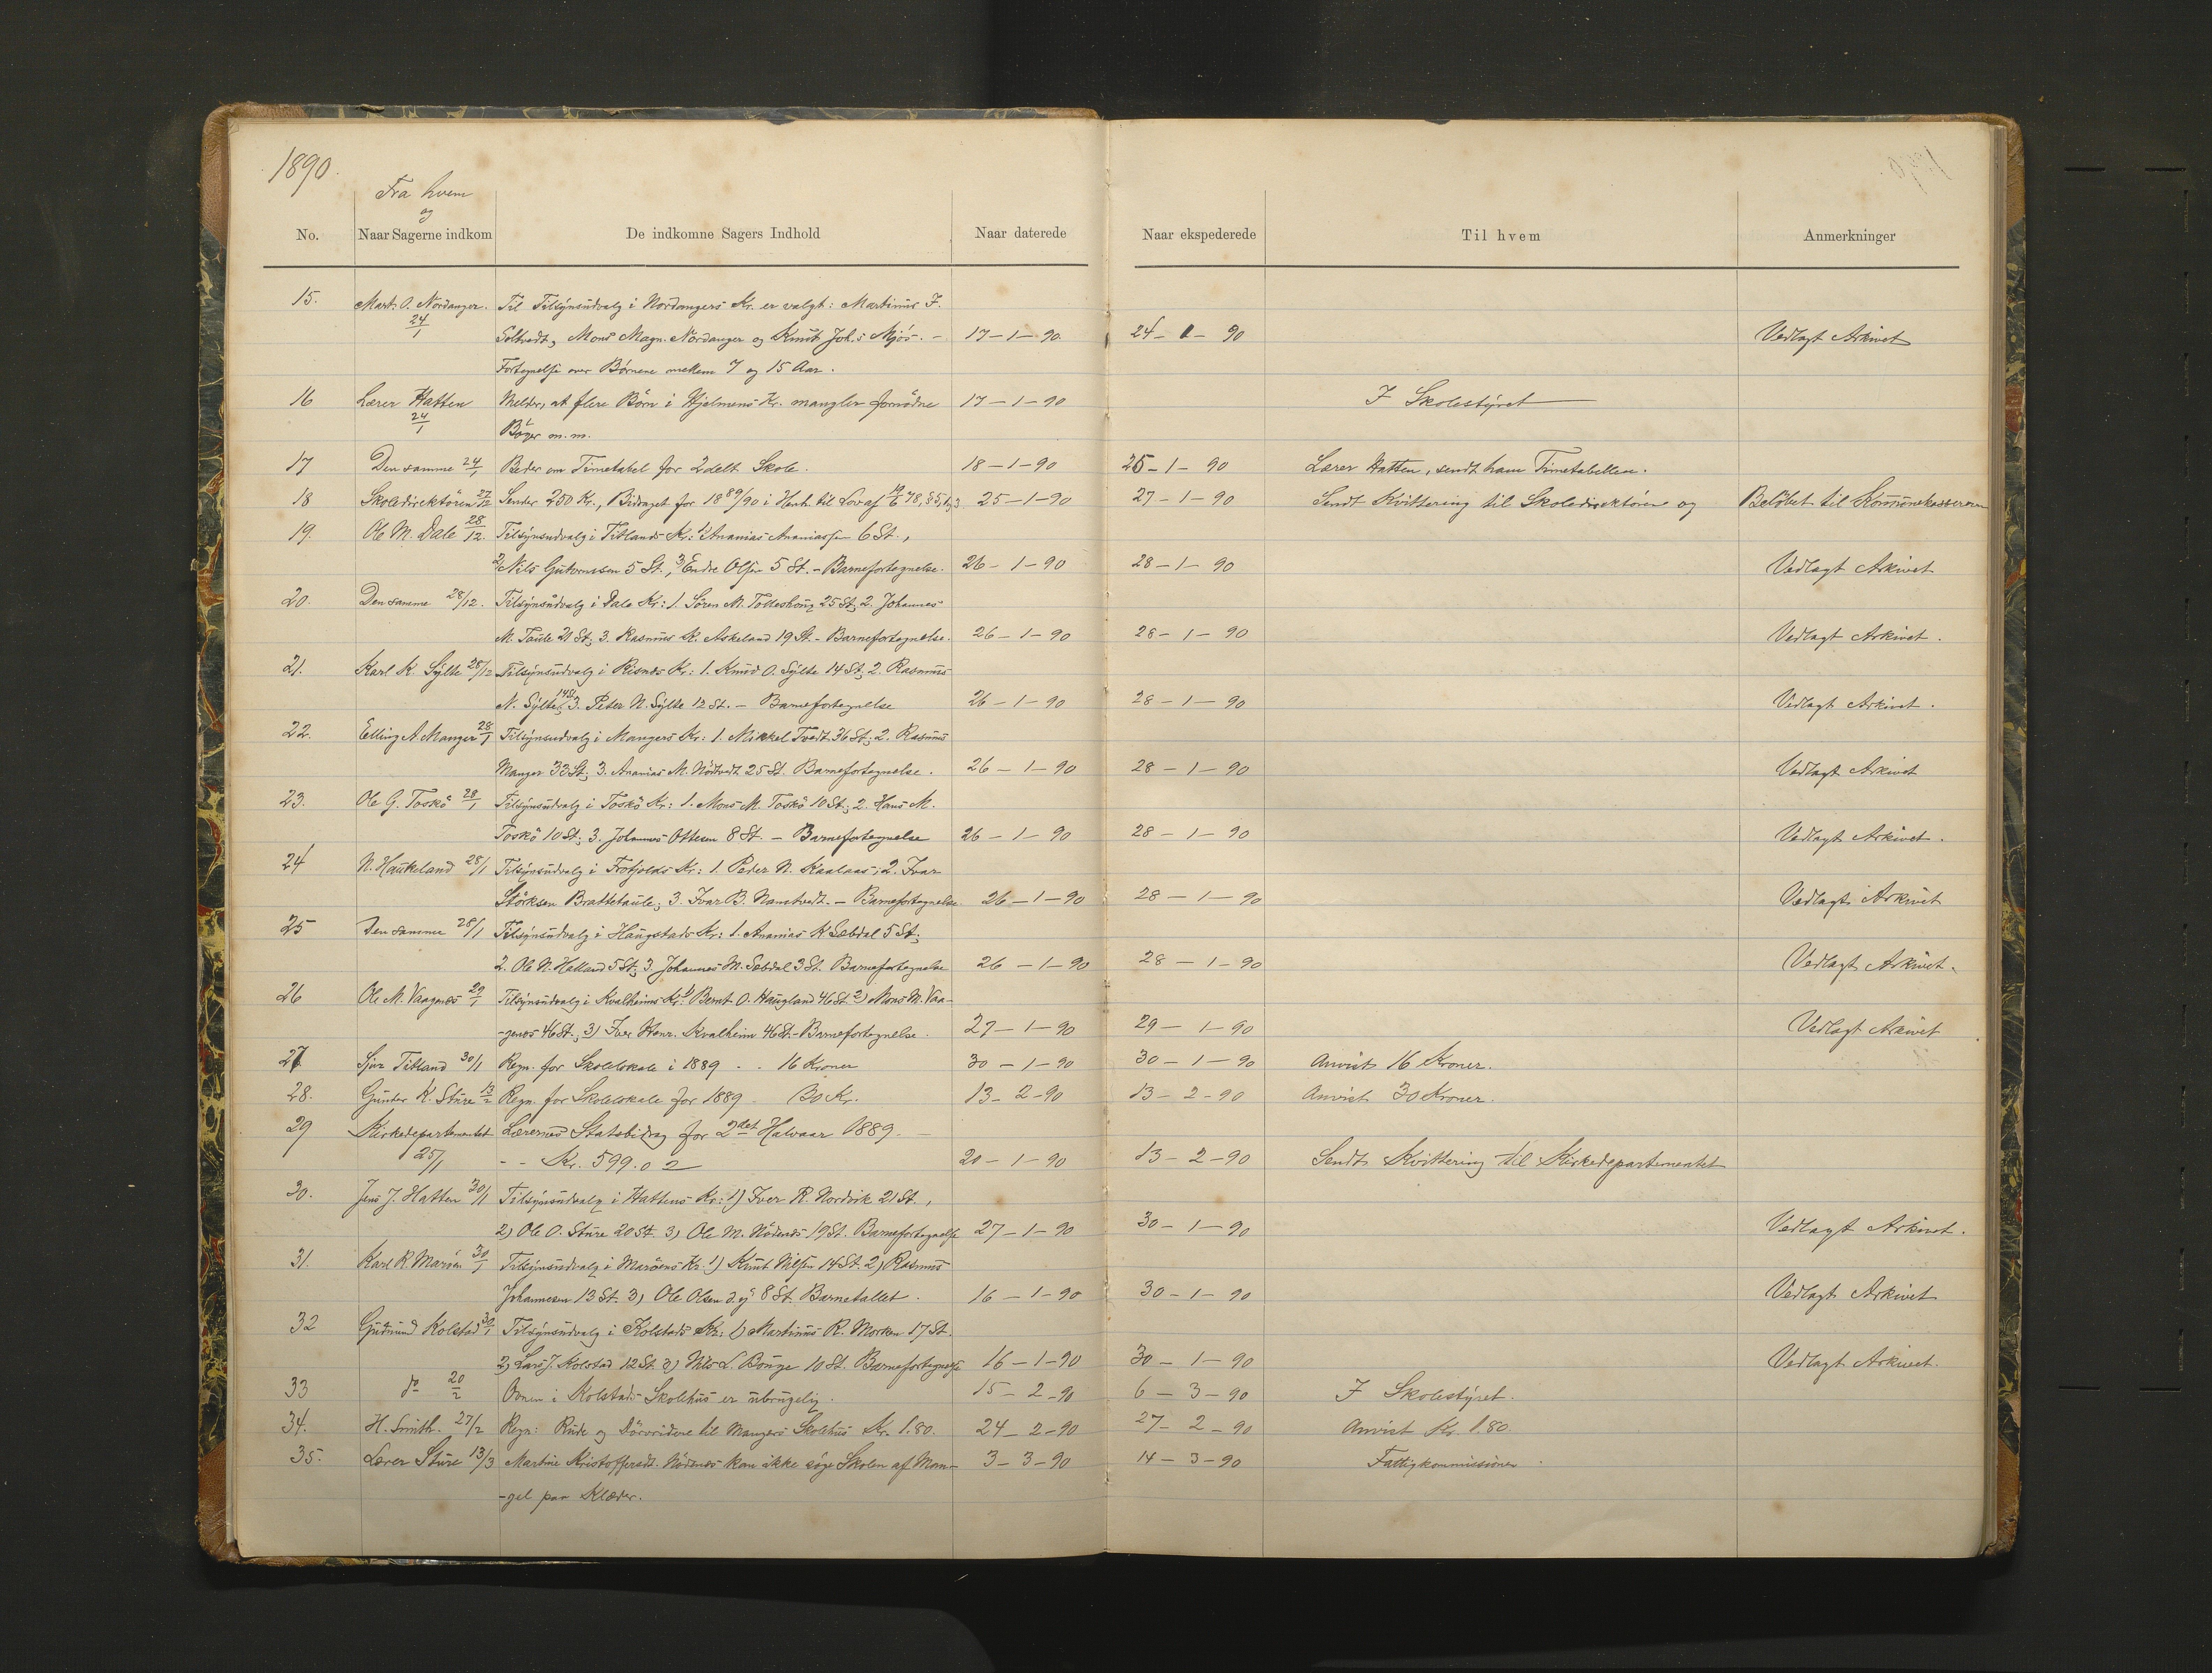 1890.
Fra hvem
og
No. Naar Sagerne indkom De indkomne Sagers Indhold Naar daterede Naar ekspederede Til hvem Anmerkninger
15. Mart. O. Nordanger. Til Tilsynsudvalg i Nordangers Kr. er valgt: Martinus J.
24/1 Soltvedt, Mons Magn. Nordanger og Knut Joh.s Mjös. - 17-1-90. 24-1-90 Vedlagt Arkivet
Fortegnelse over Børnene mellem 7 og 15 Aar.
16 Lærer Hatten Melder, at flere Börn i Hjelmens Kr. mangler fornödne 17-1-90 I Skolestyret
24/1 Bøger m.m.
17 Den samme 24/1 Beder om Timetabel for 2delt Skole. 18-1-90 25-1-90 Lærer Hatten, sendt ham Timetabellen.
18 Skoledirektören 27/12 Sender 250 Kr., Bidraget for 1889/90 i Henh. til Lov af 78, §5, 25-1-90 27-1-90 Sendt Kvittering til Skoledirektören og Belöbet til Kommunekassereren
19. Ole M. Dale 28/12 Tilsynsudvalg i Titlands Kr.: 1) Ananias Ananiassen 6 St.,
2) Nils Guttormsen 5 St., 3) Endre Olsen 5 St. - Barnefortegnelse. 26-1-90 28-1-90 Vedlagt Arkivet
20. Den samme 28/12. Tilsynsudvalg i Dale Kr: 1. Sören M. Tolleshoug 25 St; 2. Johannes
M. Toule 21 St; 3. Rasmus K. Askeland 19 St. - Barnefortegnelse. 26-1-90 28-1-90 Vedlagt Arkivet.
21. Karl K. Sylte 28/12 Tilsynsudvalg i Risnes Kr.: 1. Knud O. Sylte 14 St; 2. Rasmus
N. Sylte 14 St; 3. Peter N. Sylte 12 St. - Barnefortegnelse 26-1-90 28-1-90 Vedlagt Arkivet.
22. Elling A. Manger 28/1 Tilsynsudvalg i Mangers Kr: 1. Mikkel Tvedt 36 St; 2. Rasmus
Manger 33 St; 3. Ananias M. Nödtvedt 25 St. Barnefortegnelse. 26-1-90 28-1-90 Vedlagt Arkivet
23. Ole G. Toskö 28/1 Tilsynsudvalg i Toskö Kr: 1. Mons M. Toskö 10 St; 2. Hans M.
Toskö 10 St; 3. Johannes Ottesen 8 St. - Barnefortegnelse 26-1-90 28-1-90 Vedlagt Arkivet.
24 N. Haukeland 28/1 Tilsynsudvalg i Frotjolds Kr: 1. Peder N. Kaalaas; 2. Ivar
Störksen Brattetaule; 3. Ivar B. Namtvedt. - Barnefortegnelse 26-1-90 28-1-90 Vedlagt Arkivet
25 Den samme 28/1 Tilsynsudvalg i Haugstads Kr: 1. Ananias K. Sæbdal 5 St;
2. Ole N. Halland 5 St; 3. Johannes M. Sæbdal 3 St. Barnefortegnelse 26-1-90 28-1-90 Vedlagt Arkivet.
26 Ole M. Vaagenes 29/1 Tilsynsudvalg i Kvalheims Kr. 1) Bernt O. Haugland 46 St. 2) Mons M. Vaa-
-genes 46 St.; 3) Iver Henr. Kvalheim 46 St. - Barnefortegnelse. 27-1-90 29-1-90 Vedlagt Arkivet
27 Sjur Titland 30/1 Regn. for Skolelokale i 1889 - - 16 Kroner 30-1-90 30-1-90 Anvist 16 Kroner.
28. Gunder K. Sture 13/2 Regn. for Skolelokale for 1889 - 30 Kr. 13-2-90 13-2-90 Anvist 30 Kroner.
29 Kirkedepartementet Lærernes Statsbidrag for 2det Halvaar 1889. -
25/1 - - Kr. 599.02 20-1-90 13-2-90 Sendt Kvittering til Kirkedepartementet
30. Jens J. Hatten 30/1 Tilsynsudvalg i Hattens Kr: 1) Iver R. Nordvik 21 St.,
2) Ole O. Sture 20 St. 3) Ole M. Nödenes 19 St. Barnefortegnelse 27-1-90 30-1-90 Vedlagt Arkivet.
31. Karl R. Maröen 30/1 Tilsynsudvalg i Maröens Kr. 1) Knut Nilsen 14 St. 2) Rasmus
Johannesen 13 St. 3) Ole Olsen d.y. 8 St. Barnetallet. 16-1-90 30-1-90 Vedlagt Arkivet
32 Gudmund Kolstad 30/1 Tilsynsudvalg i Kolstads Kr: 1) Martinus R. Morken 17 St.
2) Lars J. Kolstad 12 St. 3) Nils L. Bouge 10 St. Barnefortegnelse 16-1-90 30-1-90 Vedlagt Arkivet.
33 do 20/2 Ovnen i Kolstads Skolehus er ubrugelig. 15-2-90 6-3-90 I Skolestyret.
34. H. Smith. 27/2 Regn: Rude og Dörvridere til Mangers Skolehus Kr. 1.80. 24-2-90 27-2-90 Anvist Kr. 1.80.
35. Lærer Sture 13/3 Martine Kristoffersdt. Nödenes kan ikke söge Skolen af Man- 3-3-90 14-3-90 Fattigkommissionen.
-gel paa Klæder.